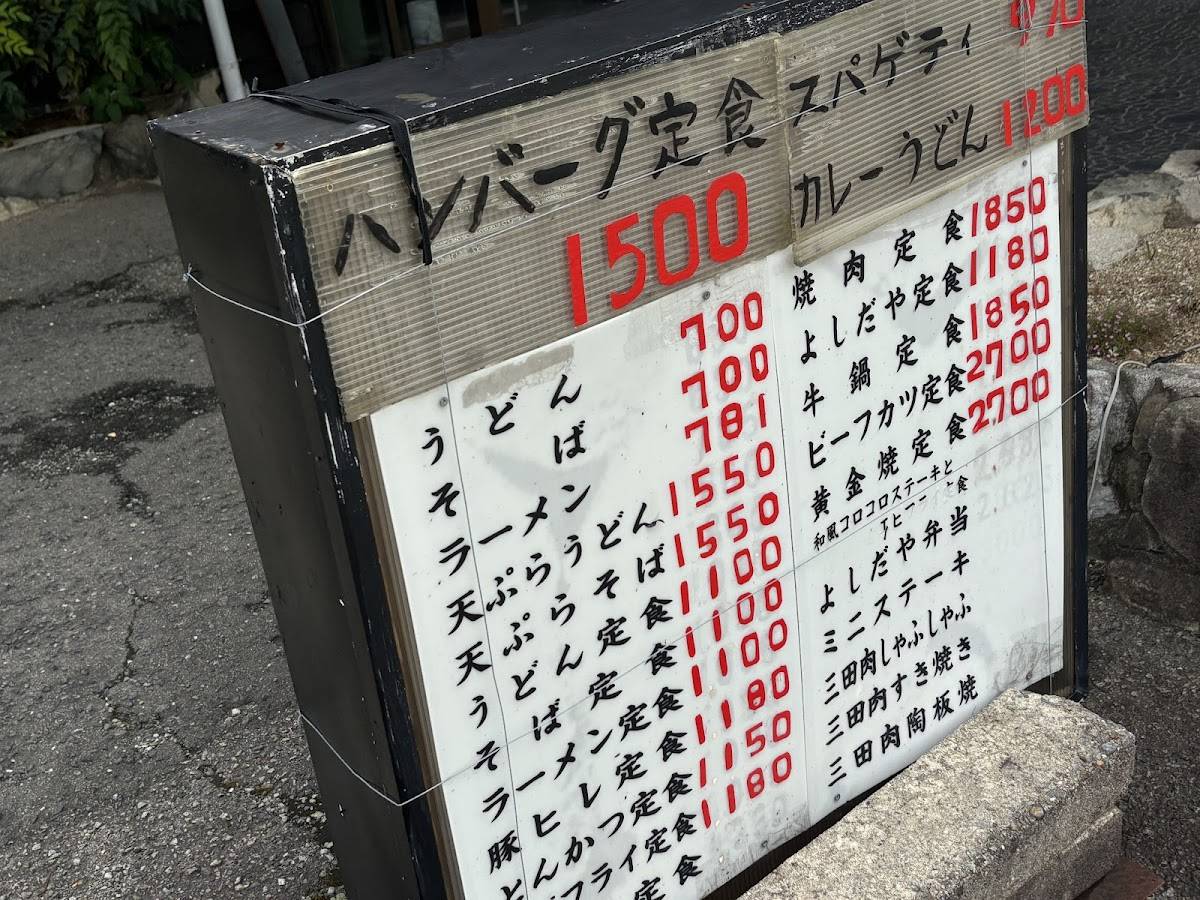 ハンバーグ定食
1500
スパゲティ
カレーうどん 1200
うどん 700
そば 700
ラーメン 781
天ぷらうどん 1550
天ぷらそば 1550
うどん定食 1100
そば定食 1100
ラーメン定食 1100
豚ヒレ定食 1180
とんかつ定食 1150
フライ定食 1180
定食
焼肉定食 1850
よしだや定食 1180
牛鍋定食 1850
ビーフカツ定食 2700
黄金焼定食 2700
和風コロコロステーキと
定食
よしだや弁当
ミニステーキ
三田肉しゃふしゃふ
三田肉すき焼き
三田肉陶板焼